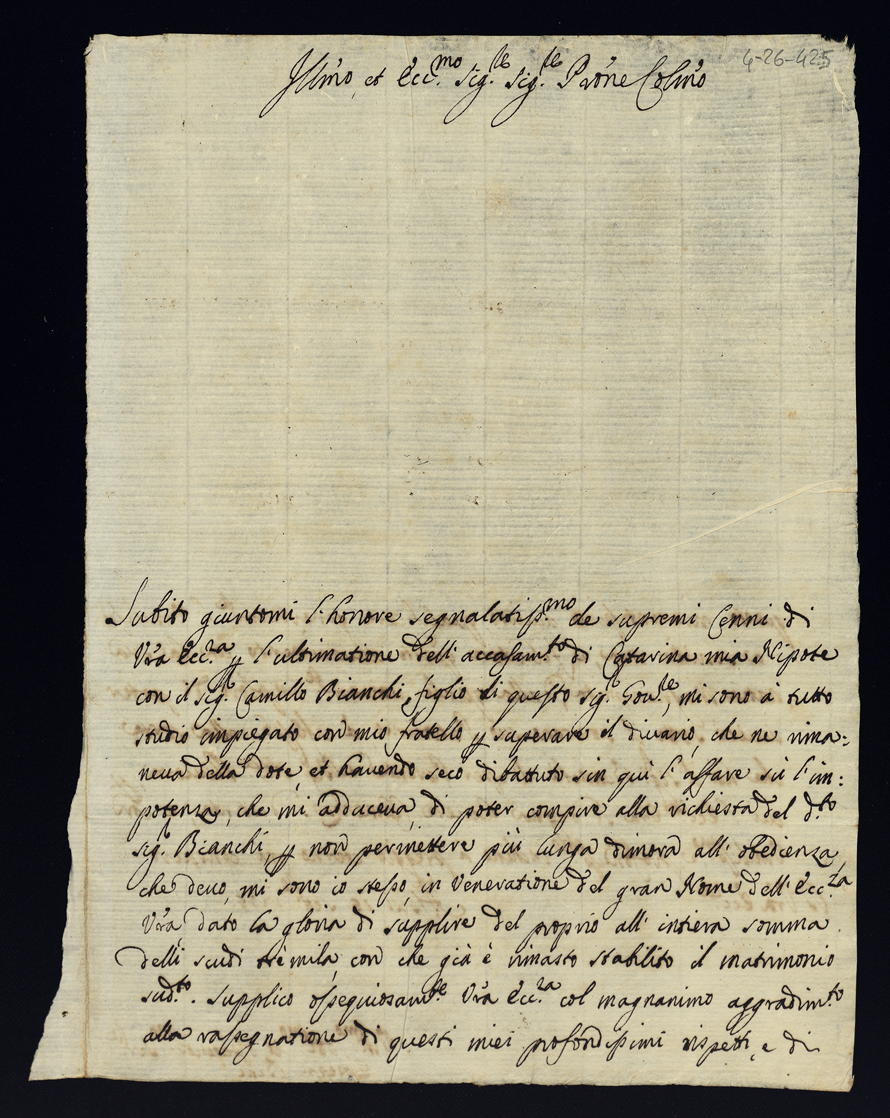 4-26-425
Ill.mo, et Ecc.mo Sig.re Sig.re P'rone Col'mo
Subito giuntomi l'honore segnalatiss.mo de supremi Cenni di
V'ra Ecc.za p l'ultimatione dell'accasam.to di Catarina mia Nipote
con il Sig.r Camillo Bianchi, figlio di questo Sig.r Gov.re, mi sono à tutto
studio impiegato con mio fratello p superare il divario, che ne rima=
neva della dote, et havendo seco dibattuto sin quì l'affare sù l'im=
potenza, che mi adduceva, di poter compire alla richiesta del d.to
Sig.r Bianchi, p non permettere più lunga dimora all'obedienza,
che devo, mi sono io stesso, in Veneratione del gran Nome dell'Ecc.za
V'ra, dato la gloria di supplire del proprio all'intiera somma
delli scudi trè mila, con che già è rimasto stabilito il matrimonio
sud.to. Supplico ossequiosam.te V'ra Ecc.za col magnanimo aggradim.to
alla rassegnatione di questi miei profondissimi rispetti, e di